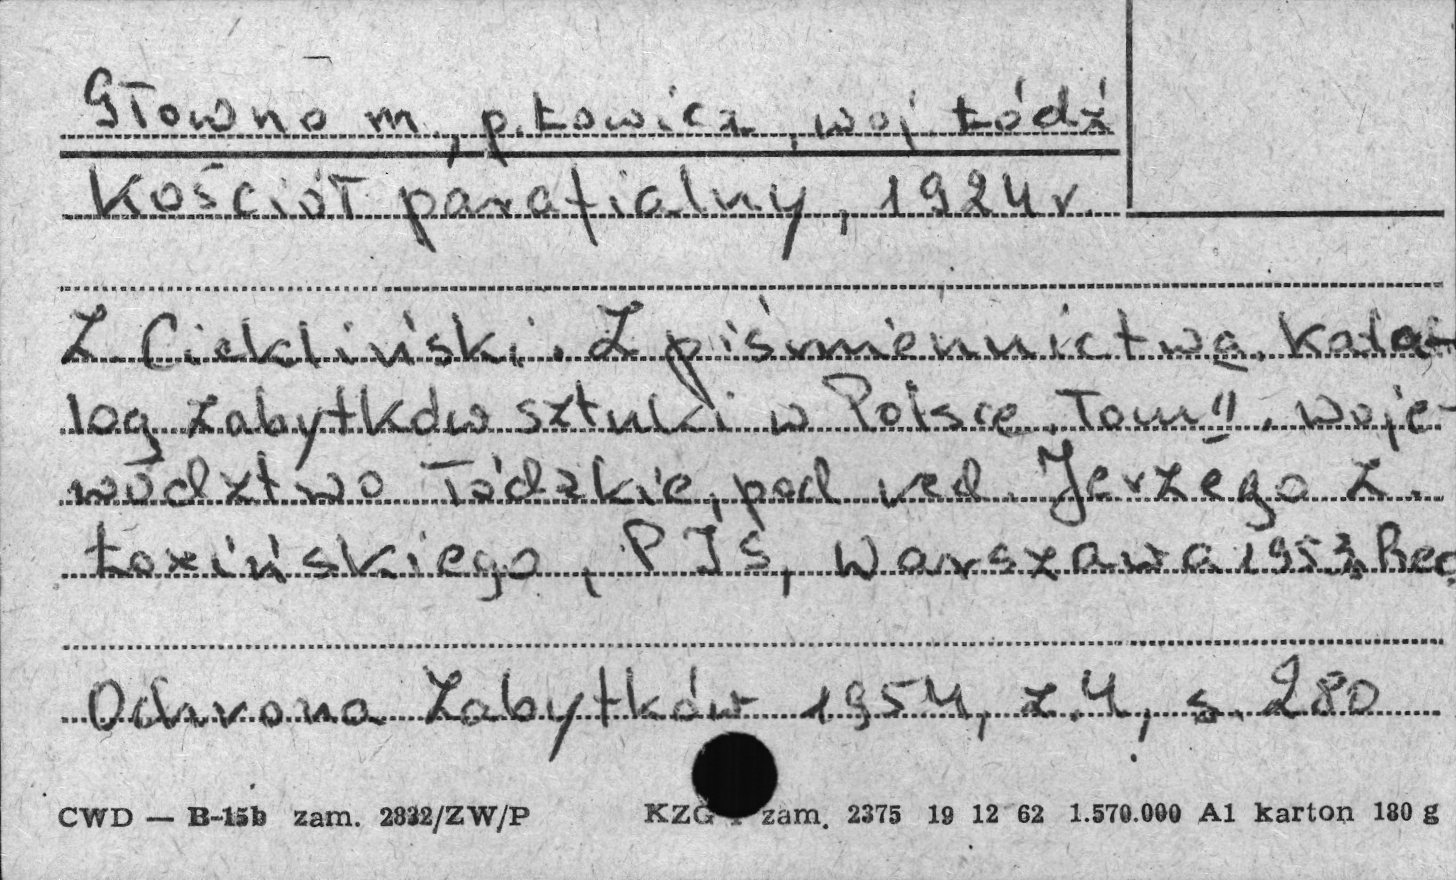 Głowno m., p. Łowicz, woj. Łódź
Kościół parafialny, 1924 r.
Z. Ciekliński. Z piśmiennictwa. Kata-
log zabytków sztuki w Polsce. Tom II. Woje-
wództwo łódzkie, pod red. Jerzego Z.
Łozińskiego, PIS, Warszawa 1953. Rec.
Ochrona Zabytków 1954, z. 4, s. 280
CWD — B-15b zam. 2832/ZW/P KZG zam. 2375 19 12 62 1.570.000 A1 karton 180 g